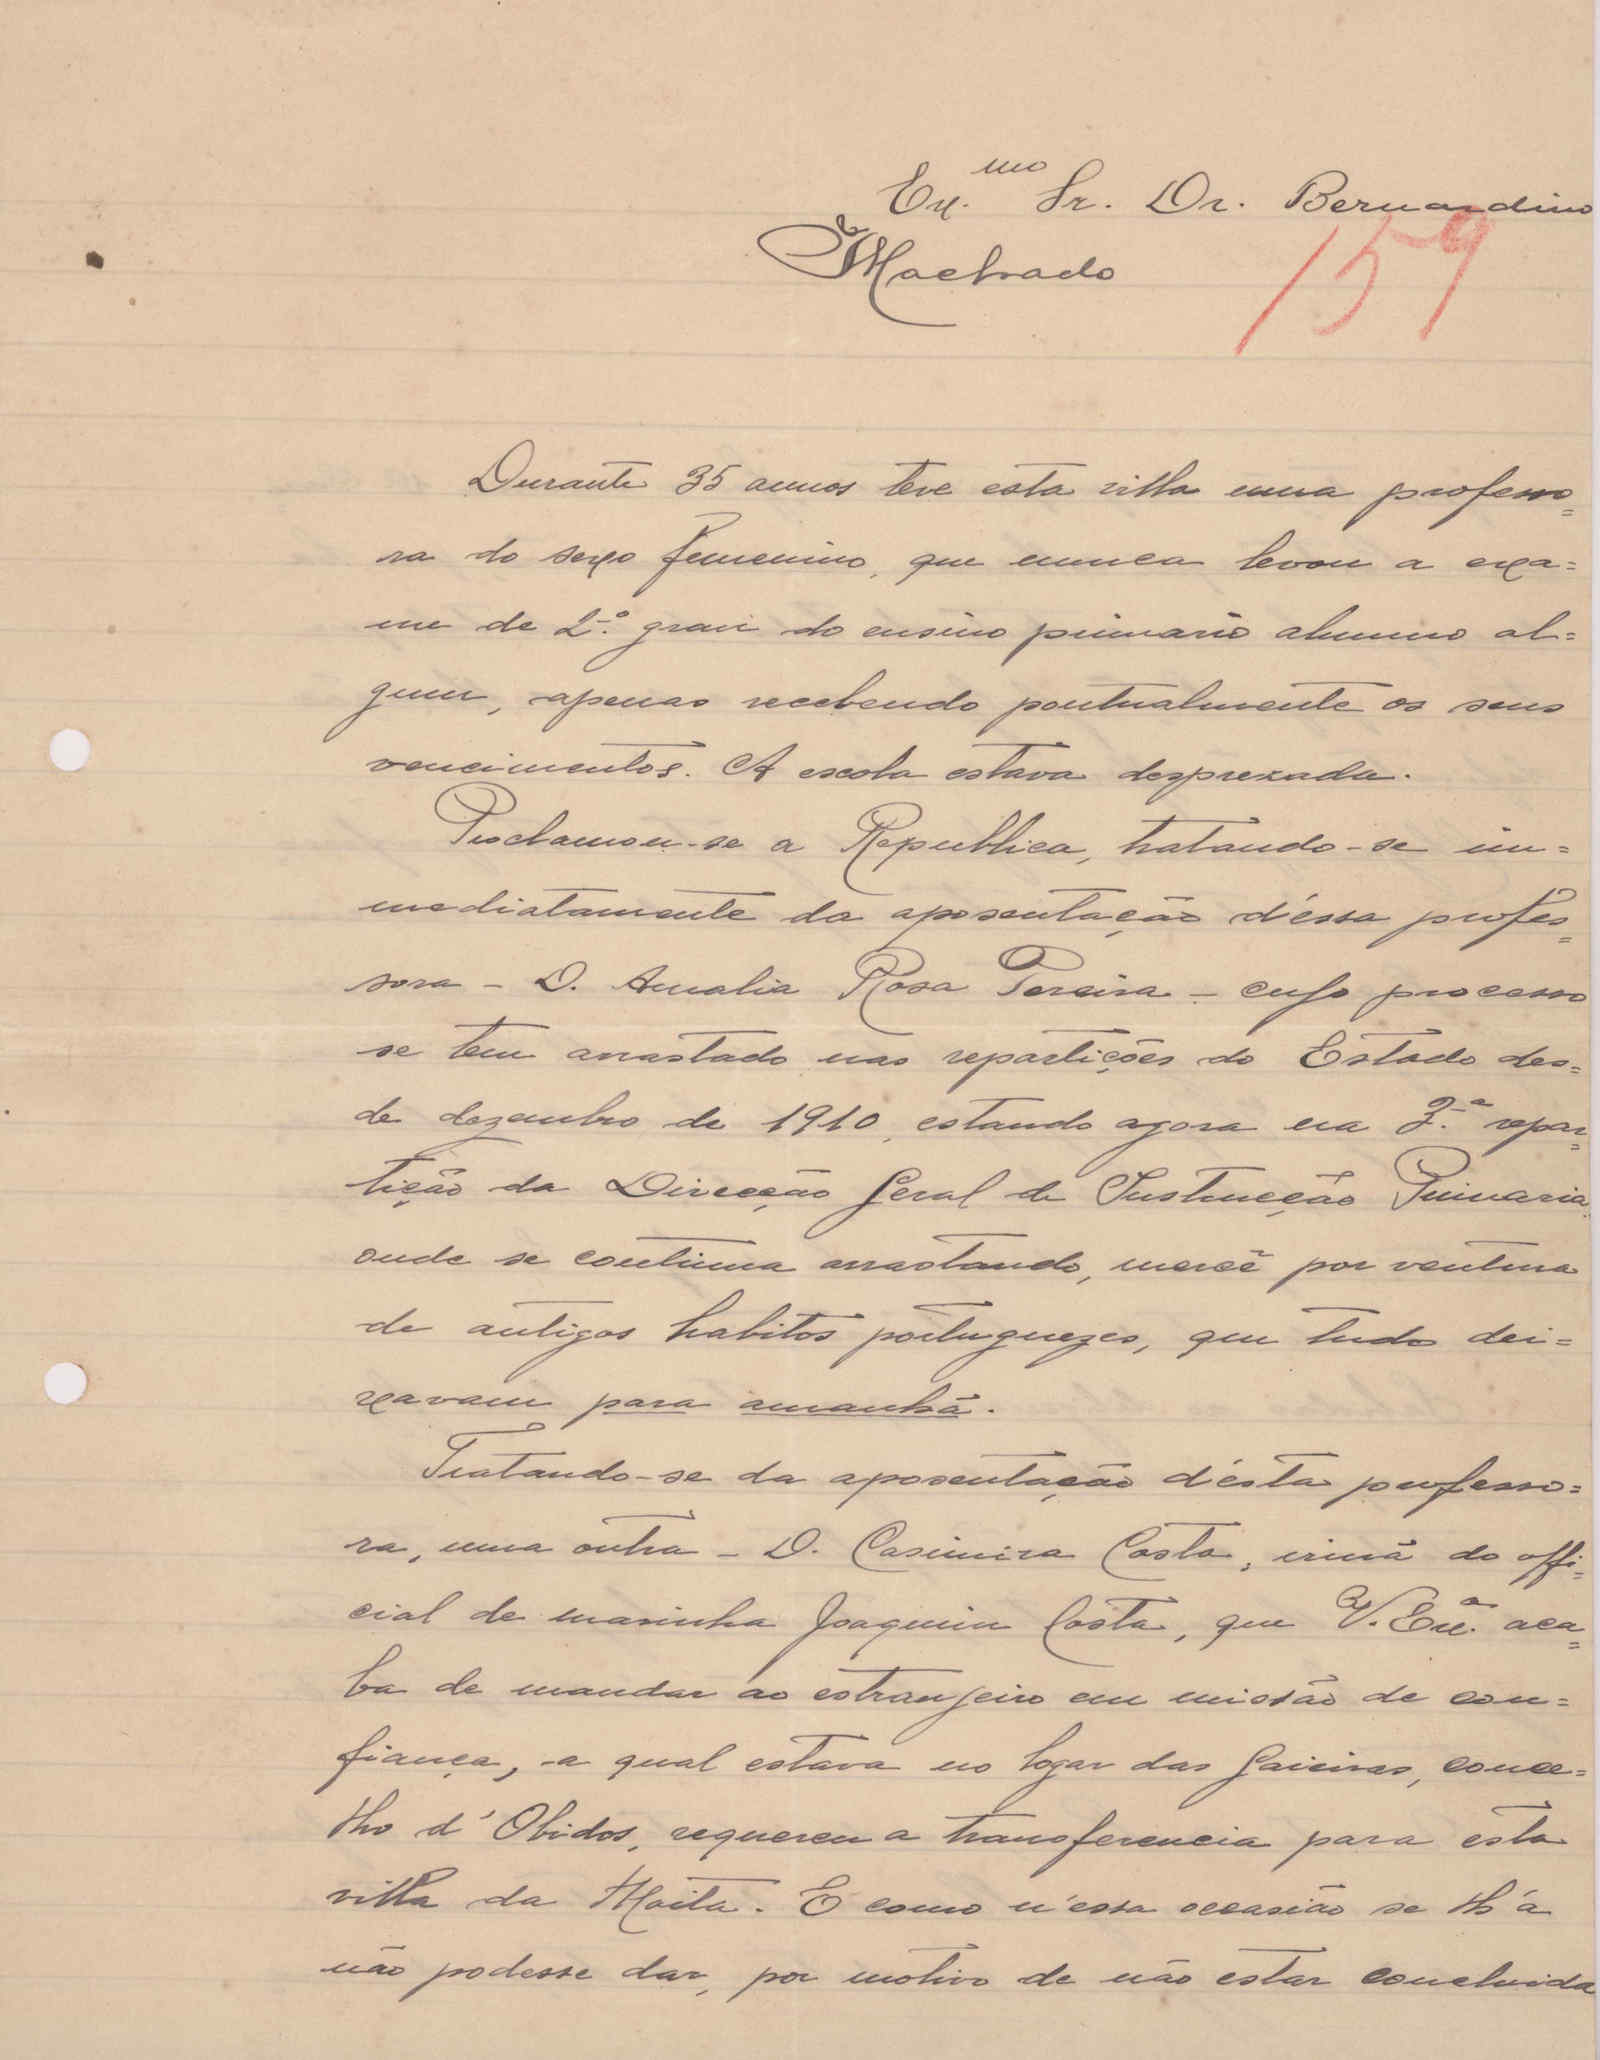 Ex.mo Sr. Dr. Bernardino
Machado
159
Durante 35 annos teve esta villa uma professo=
ra do sexo femenino, que nunca levou a exa=
me de 2.º grau do ensino primario alumno al=
gum, apenas recebendo pontualmente os seus
vencimentos. A escola estava desprezada.
Proclamou-se a Republica, tratando-se im=
mediatamente da aposentação d'éssa profes=
sora - D. Amalia Rosa Pereira - cujo processo
se tem arrastado nas repartições do Estado des=
de dezembro de 1910, estando agora na 3.ª repar=
tição da Direcção Geral de Instrucção Primaria,
onde se continua arrastando, mercê por ventura
de antigos habitos portuguezes, que tudo dei=
xavam para amanhã.
Tratando-se da aposentação d'ésta professo=
ra, uma outra - D. Casimira Costa, irmã do offi=
cial de marinha Joaquim Costa, que V. Ex.ª aca=
ba de mandar ao estranjeiro em missão de con=
fiança, -a qual estava no logar das Gaieiras, conce=
lho d'Obidos, requereu a transferencia para esta
villa da Moita. E como n'essa occasião se lh'a
não podesse dar, por motivo de não estar concluida